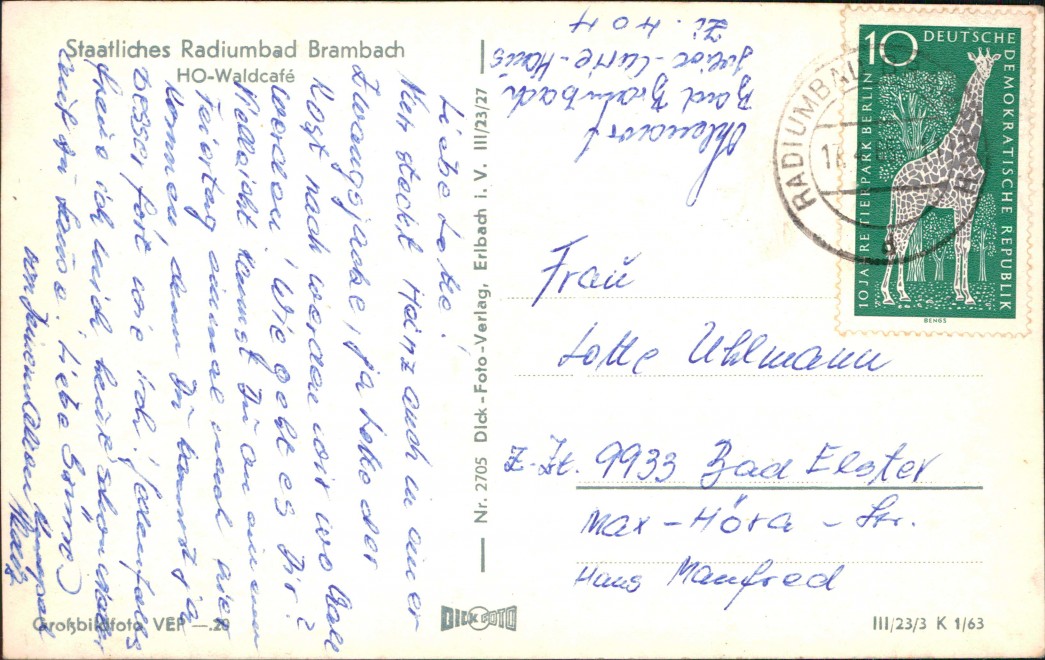 Staatliches Radiumbad Brambach
HO-Waldcafé
Ohlendorf
Bad Brambach
Joliot-Curie-Haus
Zi. 404
Liebe Lotte!
Nun steckt Heinz auch in einer
Zwangsjacke, ja Lotte der
Kost nach werden wir wo
werden! Wie geht es Dir?
Vielleicht kannst Du an einem
Feiertag einmal nach hier
kommen denn Du kannst ja
besser fort wie ich! Jedenfalls
freue ich mich heute schon
Liebe
Nr. 2705 Dick-Foto-Verlag, Erlbach i. V. III/23/27
10 DEUTSCHE DEMOKRATISCHE REPUBLIK
10 JAHRE TIERPARK BERLIN
BENGS
RADIUMBAD
Frau
Lotte Uhlmann
z. Zt. 9933 Bad Elster
Max-Höra-Str.
Haus Manfred
Großbildfoto VEP —.20
DICK FOTO
III/23/3 K 1/63